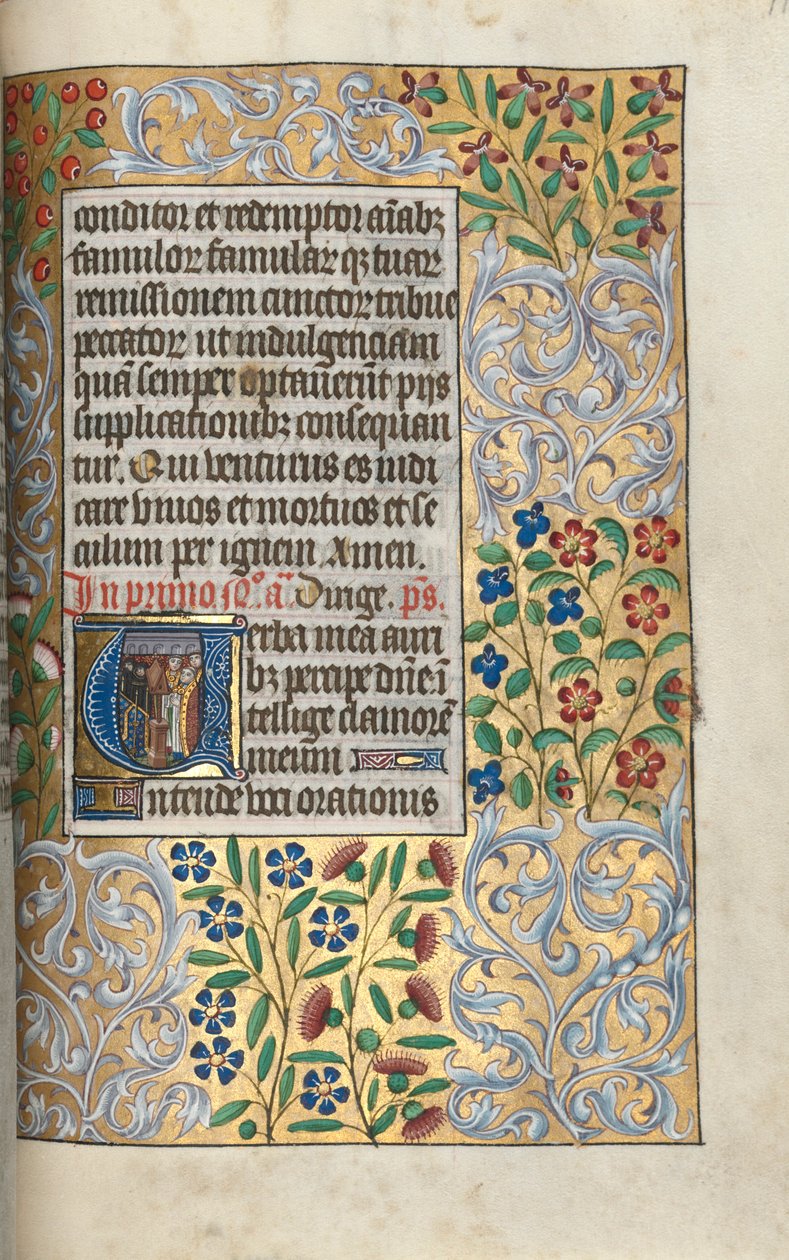 conditor et redemptor aīabꝫ
famulorꝝ famularꝝ qꝫ tuarꝝ
remissionem cunctorꝝ tribue
peccatorꝝ ut indulgenciam
quā semper optauerūt pijs
supplicationibꝫ consequan
tur. Qui venturus es iudi
care viuos et mortuos et se
culum per ignem Amen.
In primo n̊. a͞. Dirige. p̄s.
Verba mea auri
bꝫ percipe dn̄e: ī
tellige clamorē
meum
Intende voci orationis